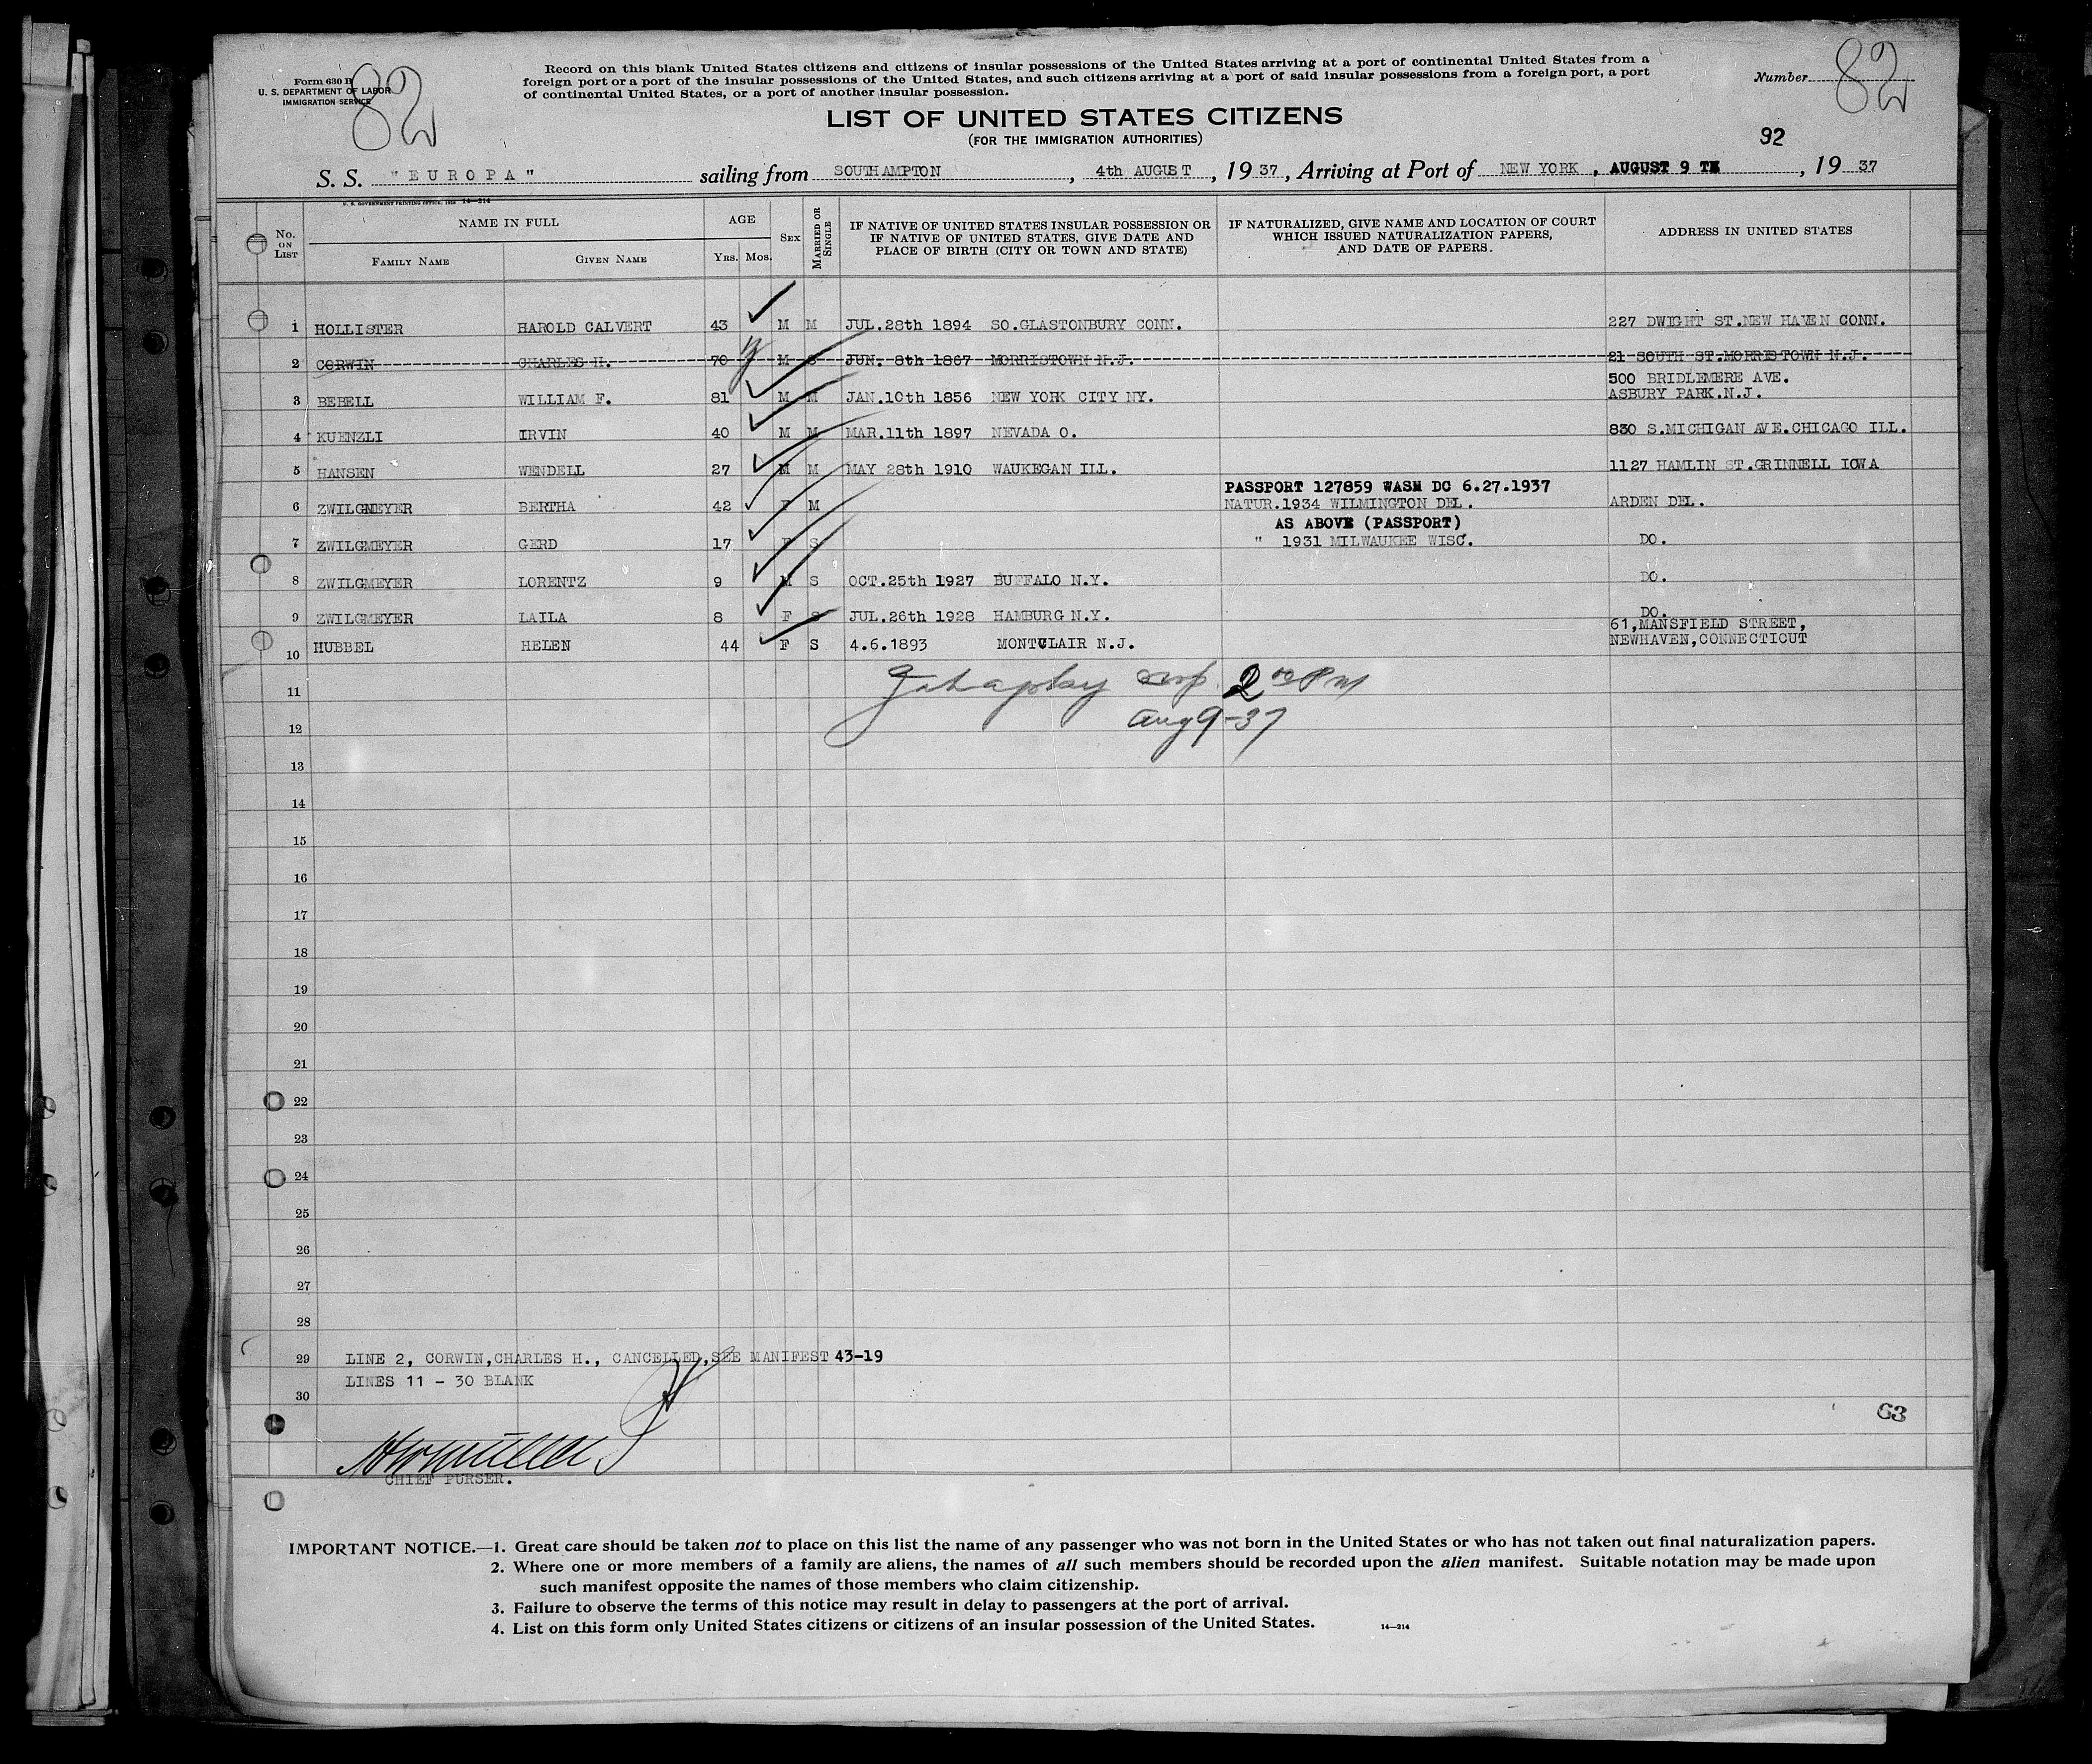 Form 630 B
U. S. DEPARTMENT OF LABOR
IMMIGRATION SERVICE
82
Record on this blank United States citizens and citizens of insular possessions of the United States arriving at a port of continental United States from a
foreign port or a port of the insular possessions of the United States, and such citizens arriving at a port of said insular possessions from a foreign port, a port
of continental United States, or a port of another insular possession.
Number 82
LIST OF UNITED STATES CITIZENS
(FOR THE IMMIGRATION AUTHORITIES)
92
S. S. "EUROPA" sailing from SOUTHAMPTON, 4th AUGUST, 1937, Arriving at Port of NEW YORK, AUGUST 9 TH, 1937
U. S. GOVERNMENT PRINTING OFFICE. 14—214
No. ON LIST
NAME IN FULL
FAMILY NAME
GIVEN NAME
AGE
YRS. MOS.
SEX
MARRIED OR SINGLE
IF NATIVE OF UNITED STATES INSULAR POSSESSION OR
IF NATIVE OF UNITED STATES, GIVE DATE AND
PLACE OF BIRTH (CITY OR TOWN AND STATE)
IF NATURALIZED, GIVE NAME AND LOCATION OF COURT
WHICH ISSUED NATURALIZATION PAPERS,
AND DATE OF PAPERS.
ADDRESS IN UNITED STATES
1 HOLLISTER HAROLD CALVERT 43 M M JUL.28th 1894 SO.GLASTONBURY CONN. 227 DWIGHT ST.NEW HAVEN CONN.
2 CORWIN CHARLES H. 70 M S JUN. 8th 1867 MORRISTOWN N.J. 21 SOUTH ST.MORRISTOWN N.J.
500 BRIDLEMERE AVE.
3 BEBELL WILLIAM F. 81 M M JAN.10th 1856 NEW YORK CITY NY. ASBURY PARK.N.J.
4 KUENZLI IRVIN 40 M M MAR.11th 1897 NEVADA O. 830 S.MICHIGAN AVE.CHICAGO ILL.
5 HANSEN WENDELL 27 M M MAY 28th 1910 WAUKEGAN ILL. 1127 HAMLIN ST.GRINNELL IOWA
PASSPORT 127859 WASH DC 6.27.1937
6 ZWILGMEYER BERTHA 42 F M NATUR.1934 WILMINGTON DEL. ARDEN DEL.
AS ABOVE (PASSPORT)
7 ZWILGMEYER GERD 17 F S " 1931 MILWAUKEE WISC. DO.
8 ZWILGMEYER LORENTZ 9 M S OCT.25th 1927 BUFFALO N.Y. DO.
9 ZWILGMEYER LAILA 8 F S JUL.26th 1928 HAMBURG N.Y. DO.
61,MANSFIELD STREET,
10 HUBBEL HELEN 44 F S 4.6.1893 MONTCLAIR N.J. NEWHAVEN,CONNECTICUT
11 2 00 PM
12 Aug 9-37
13
14
15
16
17
18
19
20
21
22
23
24
25
26
27
28
29 LINE 2, CORWIN,CHARLES H., CANCELLED,SEE MANIFEST 43-19
LINES 11 - 30 BLANK
30
63
CHIEF PURSER.
IMPORTANT NOTICE.—1. Great care should be taken not to place on this list the name of any passenger who was not born in the United States or who has not taken out final naturalization papers.
2. Where one or more members of a family are aliens, the names of all such members should be recorded upon the alien manifest. Suitable notation may be made upon
such manifest opposite the names of those members who claim citizenship.
3. Failure to observe the terms of this notice may result in delay to passengers at the port of arrival.
4. List on this form only United States citizens or citizens of an insular possession of the United States. 14—214